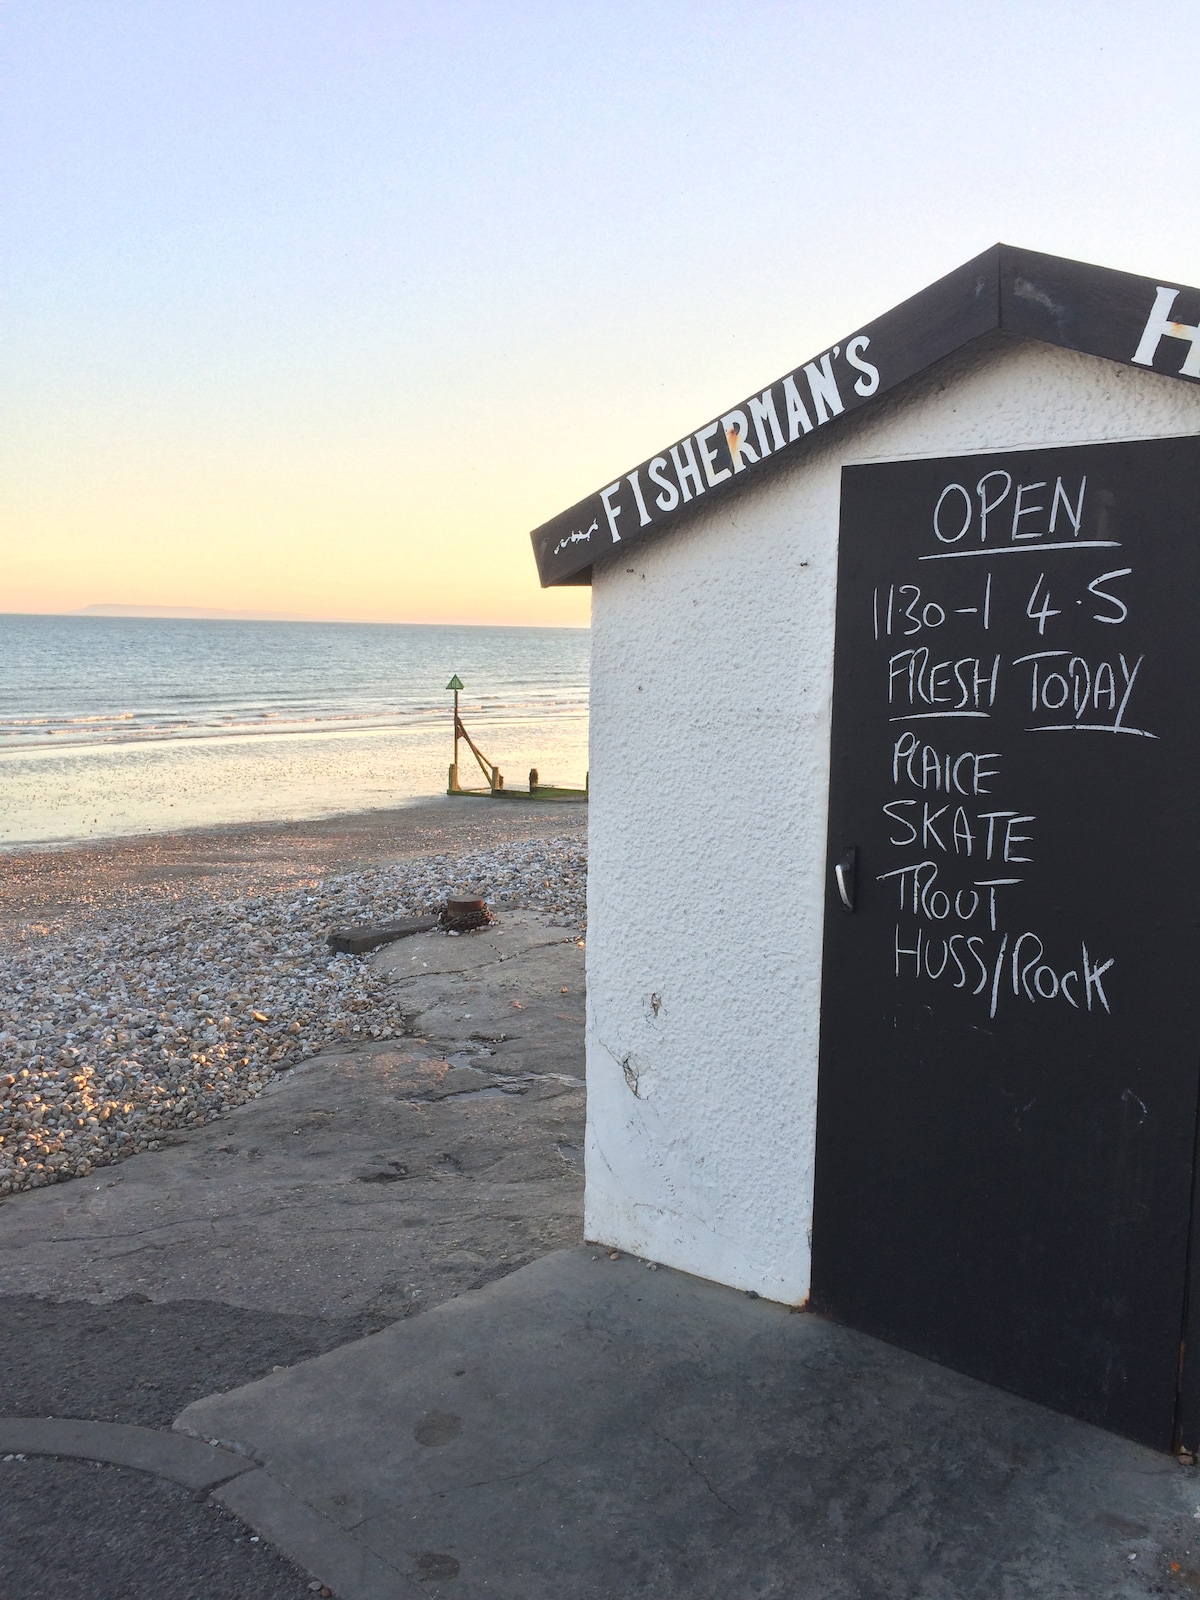 FISHERMAN'S H
OPEN
11.30-1 4.5
FRESH TODAY
PLAICE
SKATE
TROUT
HUSS/ROCK